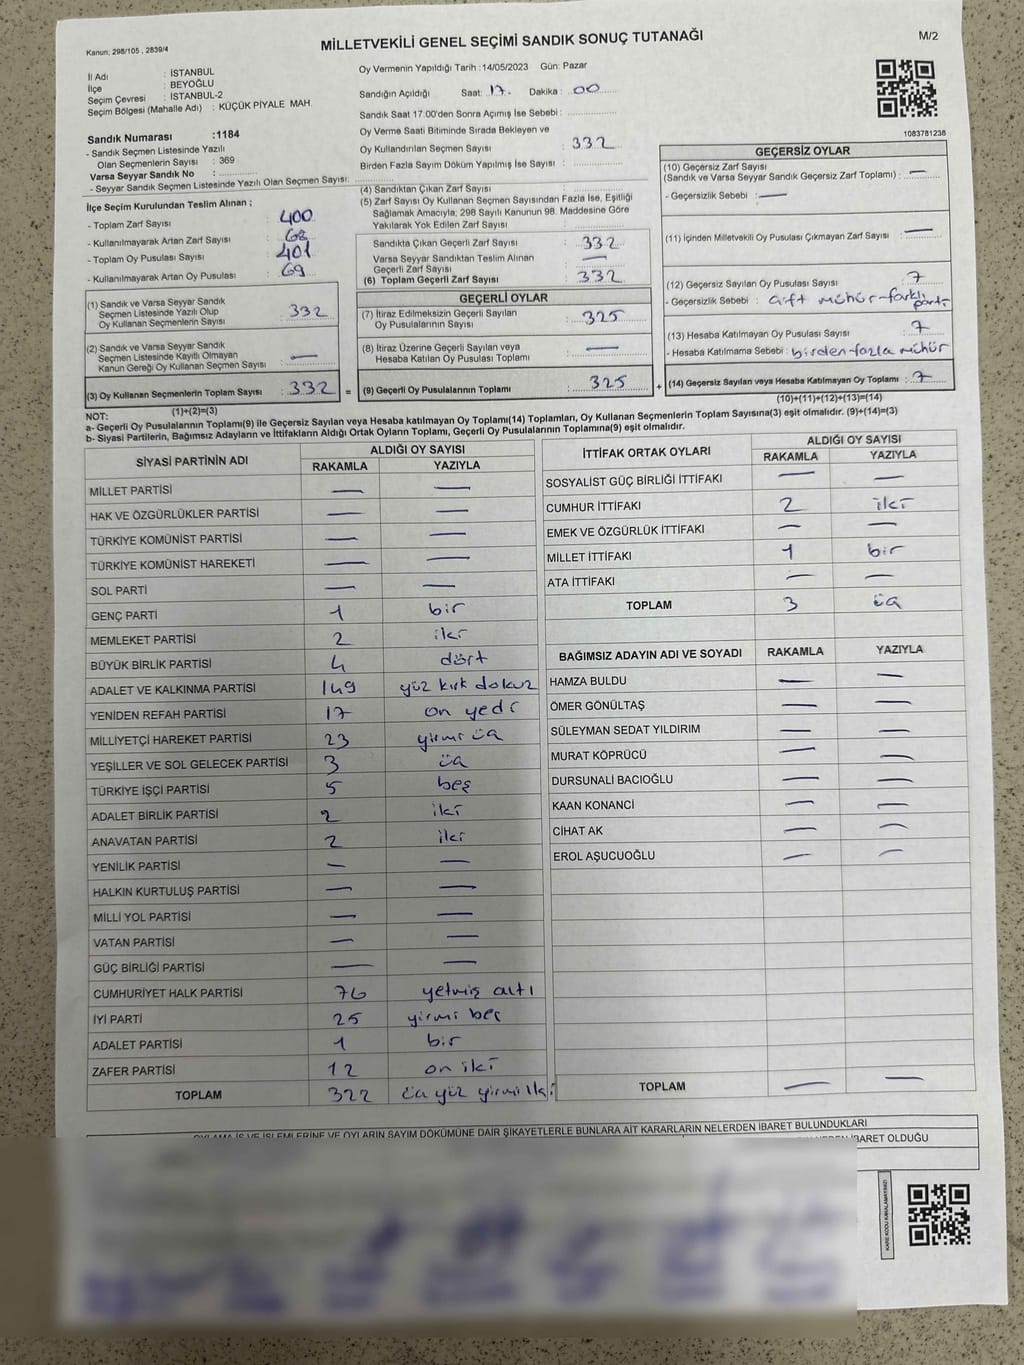 Kanun: 298/105 , 2839/4
MİLLETVEKİLİ GENEL SEÇİMİ SANDIK SONUÇ TUTANAĞI
M/2
İl Adı : İSTANBUL
İlçe : BEYOĞLU
Seçim Çevresi : İSTANBUL-2
Seçim Bölgesi (Mahalle Adı) : KÜÇÜK PİYALE MAH.
Sandık Numarası :1184
- Sandık Seçmen Listesinde Yazılı
Olan Seçmenlerin Sayısı : 369
Varsa Seyyar Sandık No :
- Seyyar Sandık Seçmen Listesinde Yazılı Olan Seçmen Sayısı:
Oy Vermenin Yapıldığı Tarih :14/05/2023 Gün: Pazar
Sandığın Açıldığı Saat: 17 Dakika : 00
Sandık Saat 17:00'den Sonra Açımış İse Sebebi :
Oy Verme Saati Bitiminde Sırada Bekleyen ve
Oy Kullandırılan Seçmen Sayısı : 332
Birden Fazla Sayım Döküm Yapılmış İse Sayısı :
1083781238
İlçe Seçim Kurulundan Teslim Alınan ;
- Toplam Zarf Sayısı : 400
- Kullanılmayarak Artan Zarf Sayısı : 68
- Toplam Oy Pusulası Sayısı : 401
- Kullanılmayarak Artan Oy Pusulası : 69
(1) Sandık ve Varsa Seyyar Sandık
Seçmen Listesinde Yazılı Olup
Oy Kullanan Seçmenlerin Sayısı : 332
(2) Sandık ve Varsa Seyyar Sandık
Seçmen Listesinde Kayıtlı Olmayan
Kanun Gereği Oy Kullanan Seçmen Sayısı : —
(3) Oy Kullanan Seçmenlerin Toplam Sayısı : 332 =
(1)+(2)=(3)
(4) Sandıktan Çıkan Zarf Sayısı :
(5) Zarf Sayısı Oy Kullanan Seçmen Sayısından Fazla İse, Eşitliği
Sağlamak Amacıyla; 298 Sayılı Kanunun 98. Maddesine Göre
Yakılarak Yok Edilen Zarf Sayısı :
Sandıkta Çıkan Geçerli Zarf Sayısı : 332
Varsa Seyyar Sandıktan Teslim Alınan
Geçerli Zarf Sayısı : —
(6) Toplam Geçerli Zarf Sayısı : 332
GEÇERLİ OYLAR
(7) İtiraz Edilmeksizin Geçerli Sayılan
Oy Pusulalarının Sayısı : 325
(8) İtiraz Üzerine Geçerli Sayılan veya
Hesaba Katılan Oy Pusulası Toplamı : —
(9) Geçerli Oy Pusulalarının Toplamı : 325 +
GEÇERSİZ OYLAR
(10) Geçersiz Zarf Sayısı
(Sandık ve Varsa Seyyar Sandık Geçersiz Zarf Toplamı) : —
- Geçersizlik Sebebi : —
(11) İçinden Milletvekili Oy Pusulası Çıkmayan Zarf Sayısı : —
(12) Geçersiz Sayılan Oy Pusulası Sayısı : 7
- Geçersizlik Sebebi : çift mühür-farklı parti
(13) Hesaba Katılmayan Oy Pusulası Sayısı : 7
- Hesaba Katılmama Sebebi : birden fazla mühür
(14) Geçersiz Sayılan veya Hesaba Katılmayan Oy Toplamı : 7
(10)+(11)+(12)+(13)=(14)
NOT:
a- Geçerli Oy Pusulalarının Toplamı(9) ile Geçersiz Sayılan veya Hesaba katılmayan Oy Toplamı(14) Toplamları, Oy Kullanan Seçmenlerin Toplam Sayısına(3) eşit olmalıdır. (9)+(14)=(3)
b- Siyasi Partilerin, Bağımsız Adayların ve İttifakların Aldığı Ortak Oyların Toplamı, Geçerli Oy Pusulalarının Toplamına(9) eşit olmalıdır.
SİYASİ PARTİNİN ADI ALDIĞI OY SAYISI
RAKAMLA YAZIYLA
MİLLET PARTİSİ — —
HAK VE ÖZGÜRLÜKLER PARTİSİ — —
TÜRKİYE KOMÜNİST PARTİSİ — —
TÜRKİYE KOMÜNİST HAREKETİ — —
SOL PARTİ — —
GENÇ PARTİ 1 bir
MEMLEKET PARTİSİ 2 iki
BÜYÜK BİRLİK PARTİSİ 4 dört
ADALET VE KALKINMA PARTİSİ 149 yüz kırk dokuz
YENİDEN REFAH PARTİSİ 17 on yedi
MİLLİYETÇİ HAREKET PARTİSİ 23 yirmi üç
YEŞİLLER VE SOL GELECEK PARTİSİ 3 üç
TÜRKİYE İŞÇİ PARTİSİ 5 beş
ADALET BİRLİK PARTİSİ 2 iki
ANAVATAN PARTİSİ 2 iki
YENİLİK PARTİSİ — —
HALKIN KURTULUŞ PARTİSİ — —
MİLLİ YOL PARTİSİ — —
VATAN PARTİSİ — —
GÜÇ BİRLİĞİ PARTİSİ — —
CUMHURİYET HALK PARTİSİ 76 yetmiş altı
İYİ PARTİ 25 yirmi beş
ADALET PARTİSİ 1 bir
ZAFER PARTİSİ 12 on iki
TOPLAM 322 üç yüz yirmi iki
İTTİFAK ORTAK OYLARI ALDIĞI OY SAYISI
RAKAMLA YAZIYLA
SOSYALİST GÜÇ BİRLİĞİ İTTİFAKI — —
CUMHUR İTTİFAKI 2 iki
EMEK VE ÖZGÜRLÜK İTTİFAKI — —
MİLLET İTTİFAKI 1 bir
ATA İTTİFAKI — —
TOPLAM 3 üç
BAĞIMSIZ ADAYIN ADI VE SOYADI RAKAMLA YAZIYLA
HAMZA BULDU — —
ÖMER GÖNÜLTAŞ — —
SÜLEYMAN SEDAT YILDIRIM — —
MURAT KÖPRÜCÜ — —
DURSUNALİ BACIOĞLU — —
KAAN KONANCİ — —
CİHAT AK — —
EROL AŞUCUOĞLU — —
TOPLAM — —
OYLAMA İŞ VE İŞLEMLERİNE VE OYLARIN SAYIM DÖKÜMÜNE DAİR ŞİKAYETLERLE BUNLARA AİT KARARLARIN NELERDEN İBARET BULUNDUKLARI
İBARET OLDUĞU
KARE KODU KARALAMAYINIZ!